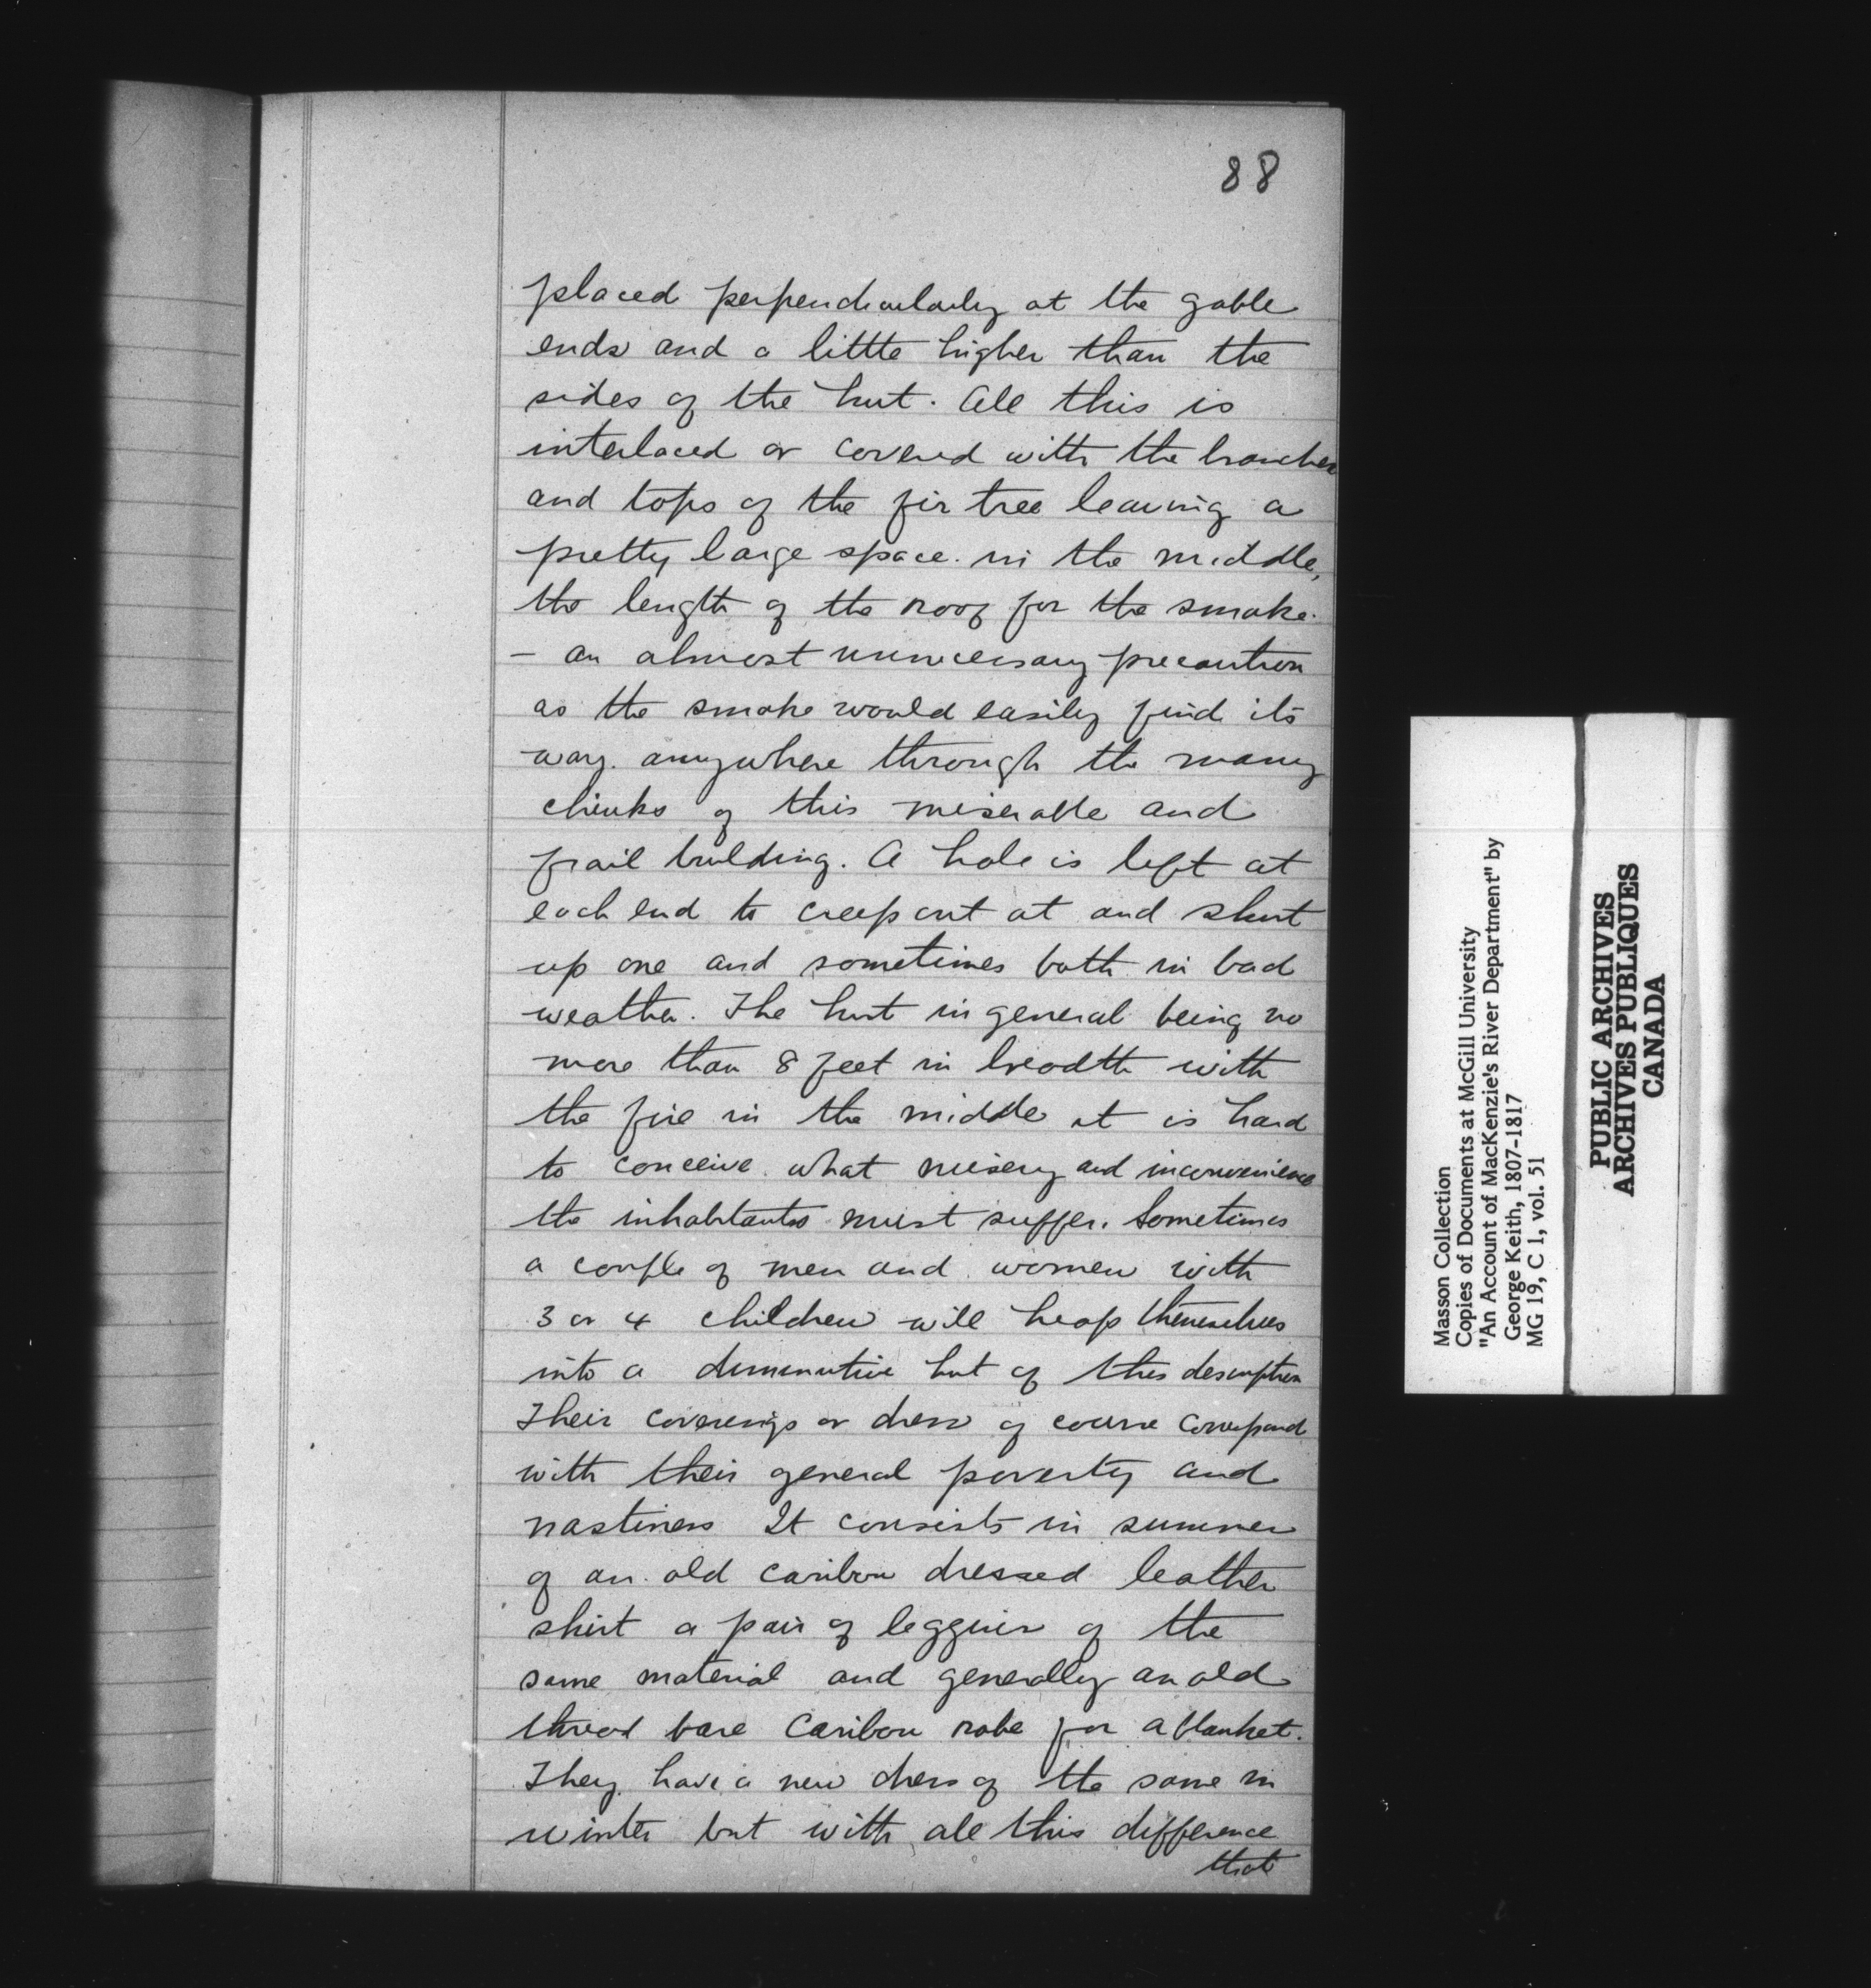 88
placed perpendicularly at the gable
ends and a little higher than the
sides of the hut. All this is
interlaced or covered with the branches
and tops of the fir tree leaving a
pretty large space in the middle,
the length of the roof for the smoke.
- an almost unnecessary precaution
as the smoke would easily find its
way anywhere through the many
chinks of this miserable and
frail building. A hole is left at
each end to creep out at and shut
up one and sometimes both in bad
weather. The hut in general being no
more than 8 feet in breadth with
the fire in the middle it is hard
to conceive what misery and inconvenience
the inhabitants must suffer. Sometimes
a couple of men and women with
3 or 4 children will heap themselves
into a diminutive hut of this description
Their coverings or dress of course correspond
with their general poverty and
nastiness It consists in summer
of an old caribou dressed leather
shirt a pair of leggins of the
same material and generally an old
thread bare caribou robe for a blanket.
They have a new dress of the same in
winter but with all this difference
that
Masson Collection
Copies of Documents at McGill University
"An Account of MacKenzie's River Department" by
George Keith, 1807-1817
MG 19, C 1, vol. 51
PUBLIC ARCHIVES
ARCHIVES PUBLIQUES
CANADA